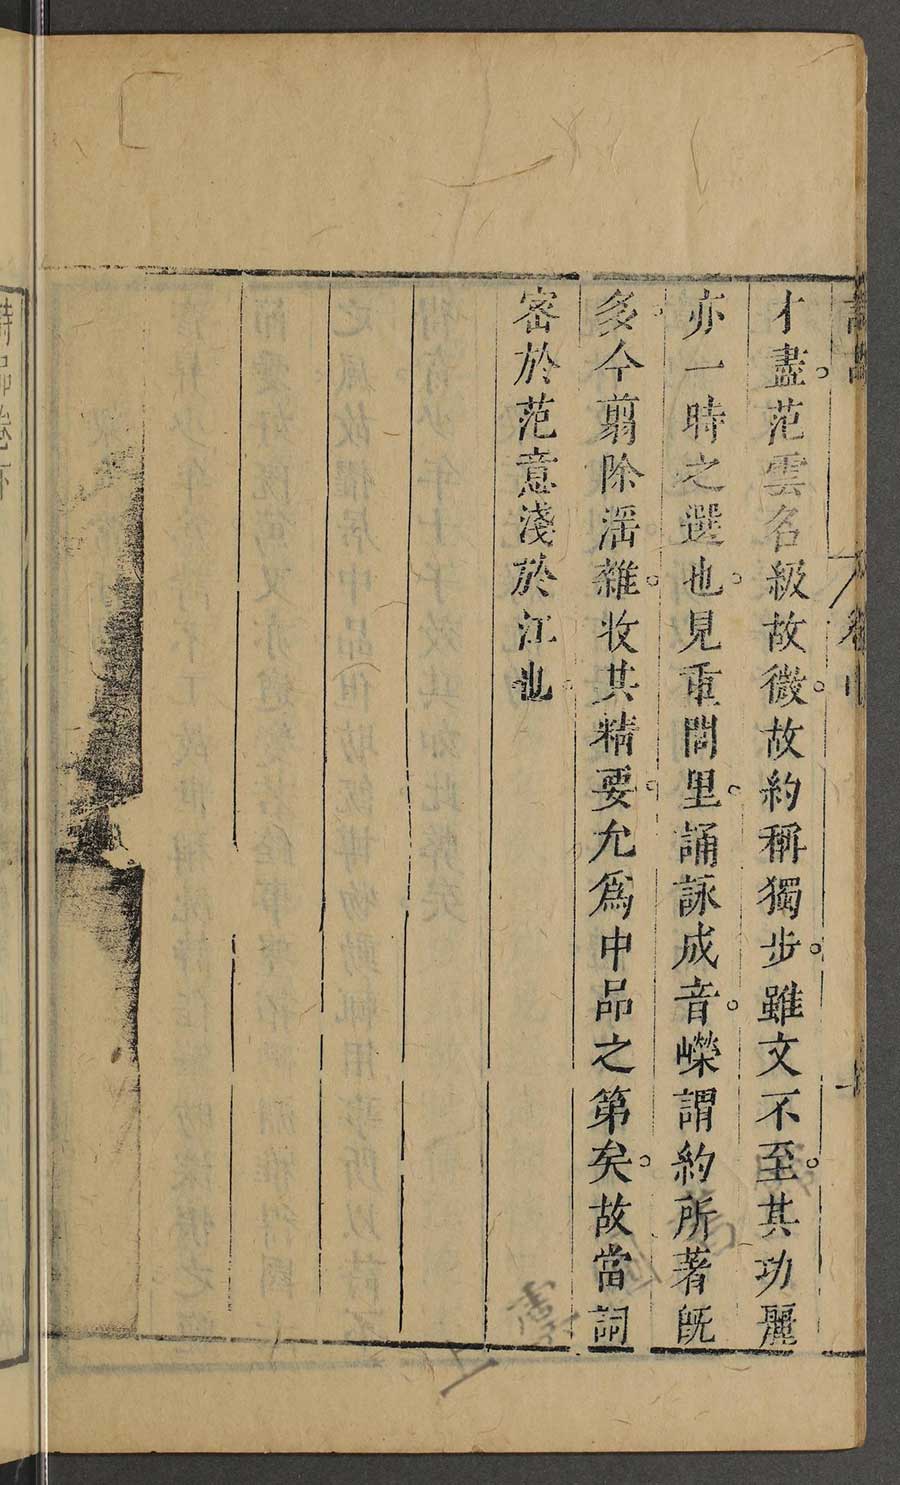 詩品 卷中
才盡。范雲名級故微。故約稱獨步。雖文不至。其功麗
亦一時之選也。見重閭里。誦詠成音。嶸謂約所著既
多。今翦除淫雜。收其精要。允爲中品之第矣。故當詞
密於范意淺於江也。
詩品卷下